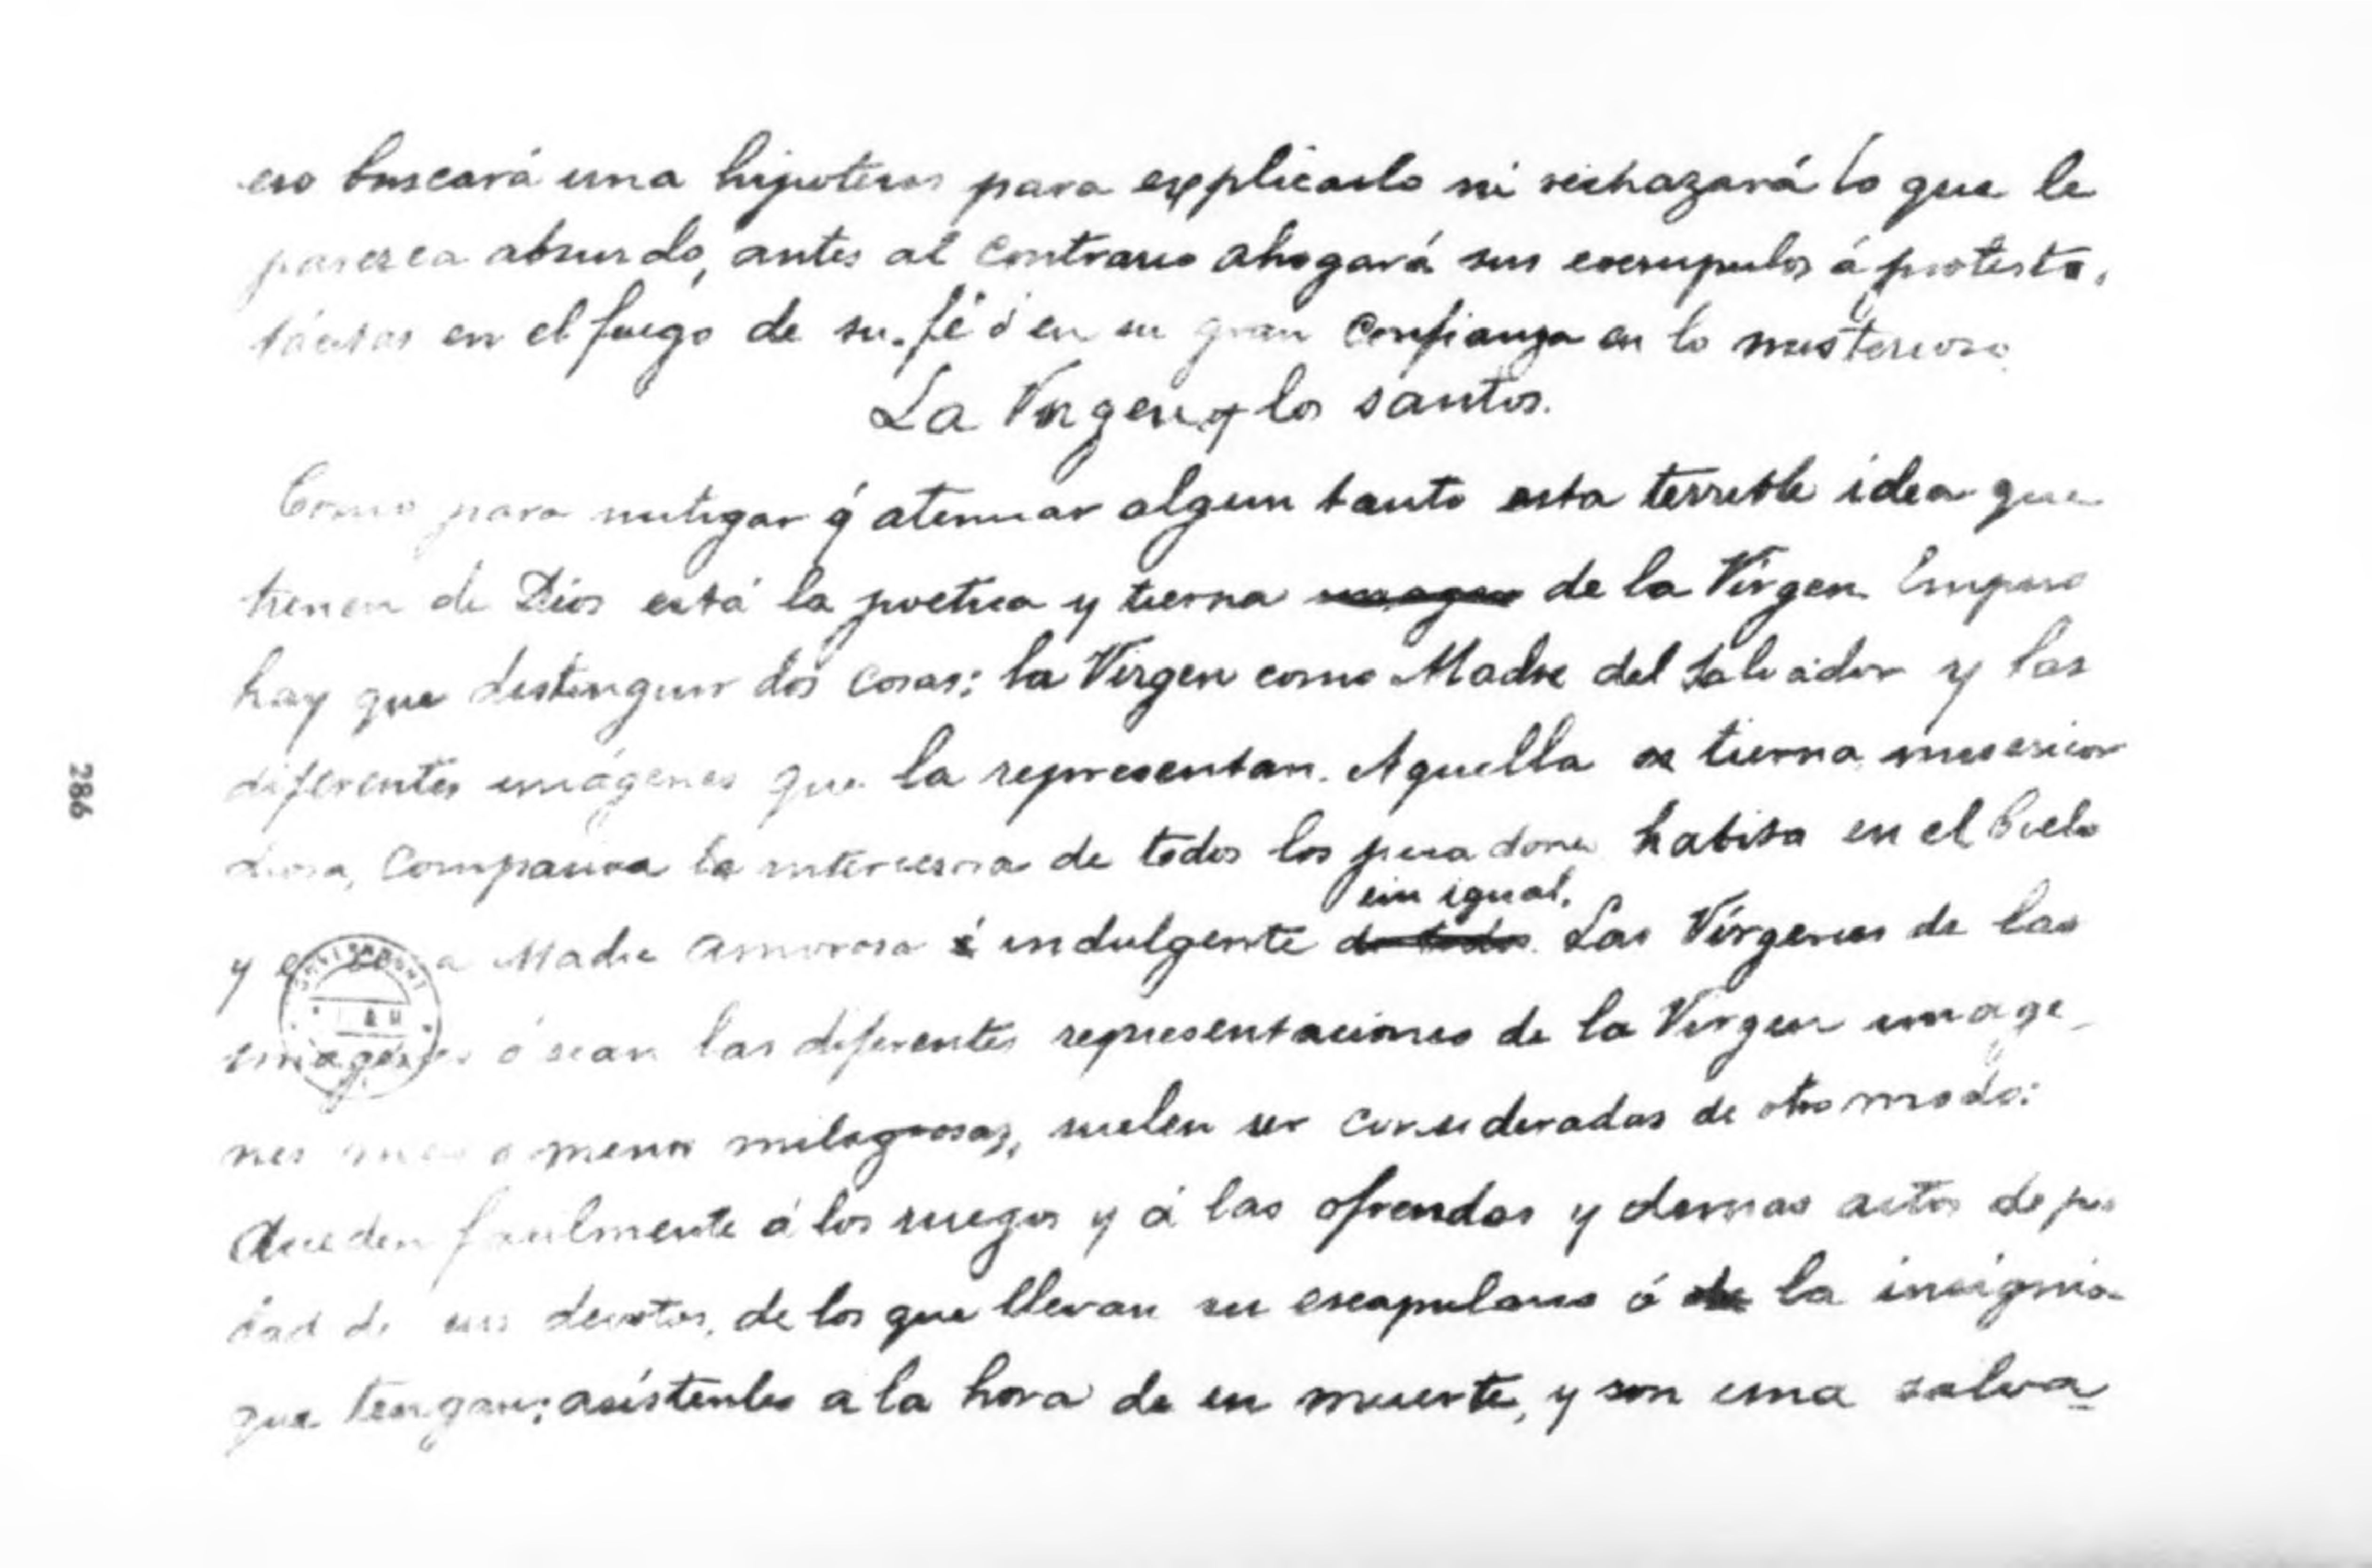 eso buscará una hipotesis para explicarlo ni rechazará lo que le
parezca absurdo, antes al contrario ahogará sus escrupulos ó protestas
tácitas en el fuego de su fé ó en su gran confianza en lo misterioso.
La Virgen y los santos.
Como para mitigar ó atenuar algun tanto esta terrible idea que
tienen de Dios está la poetica y tierna imagen de la Virgen. Empero
hay que distinguir dos cosas: la Virgen como Madre del Salvador y las
diferentes imágenes que la representan. Aquella es tierna, misericor
diosa, compasiva la intercesora de todos los pecadores habita en el Cielo
sin igual.
y es una Madre amorosa é indulgente de todos. Las Vírgenes de las
imagenes ó sean las diferentes representaciones de la Virgen image-
nes mas o menos milagrosas, suelen ser consideradas de otro modo:
Acceden facilmente á los ruegos y á las ofrendas y demas actos de pie
dad de sus devotos, de los que llevan su escapulario ó de la insignia
que tengan; asístenles a la hora de su muerte, y son una salva-
286